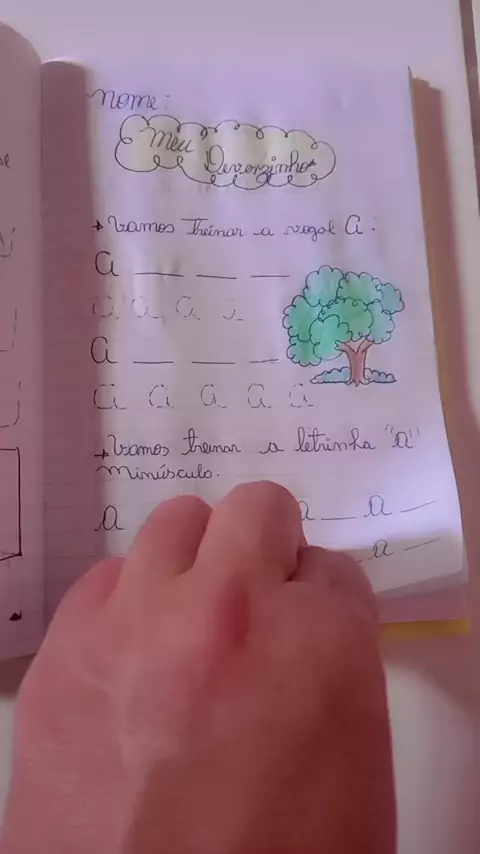 Nome:
Meu
Deverzinho
Vamos treinar a vogal A:
A ___ ___ ___
A A A A
A ___ ___ ___
A A A A A
Vamos treinar a letrinha "a"
minúsculo.
a a __ a __
a __